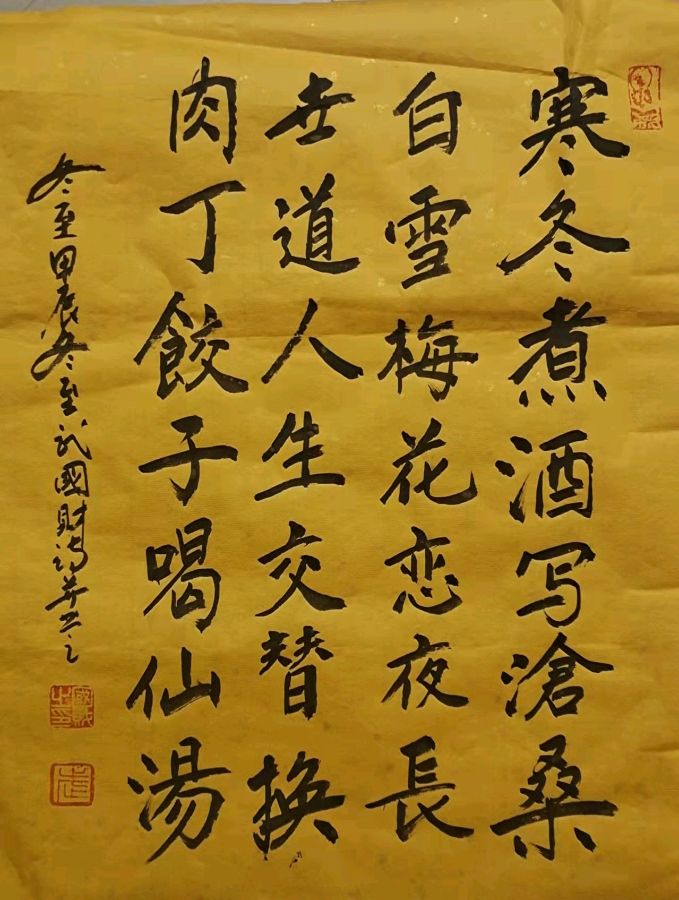 寒冬煮酒写滄桑
白雪梅花恋夜長
世道人生交替換
肉丁餃子喝仙湯
冬至甲辰冬至武國財詩并书之